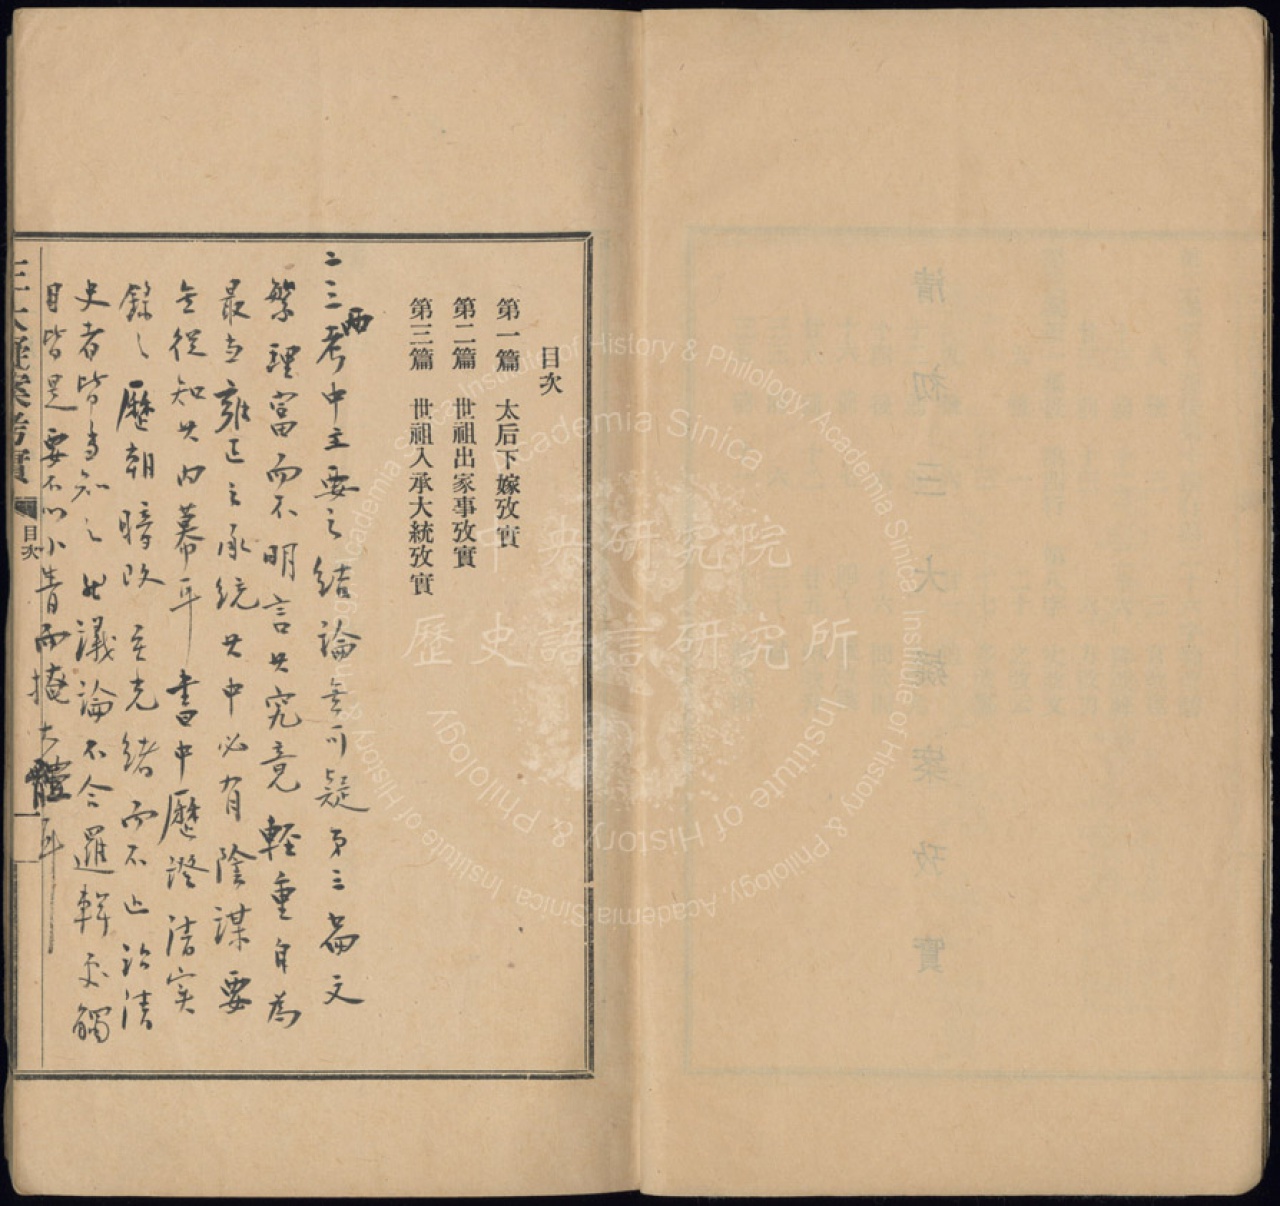 清初三大疑案攷實
目次
第一篇 太后下嫁攷實
第二篇 世祖出家事攷實
第三篇 世祖入承大統攷實
二三兩考中主要之結論無可疑第三篇文
繁理富而不明言其究竟輕重自為
最当雍正之承統其中必有陰謀要
無從知其内幕耳書中歷證清实
錄之歷朝暗改至光緒而不止治清
史者皆當知之然議論不合邏輯處觸
目皆是要不以小眚而掩大體耳
三大疑案考實 目次 一
中央研究院
歷史語言研究所
Institute of History & Philology, Academia Sinica